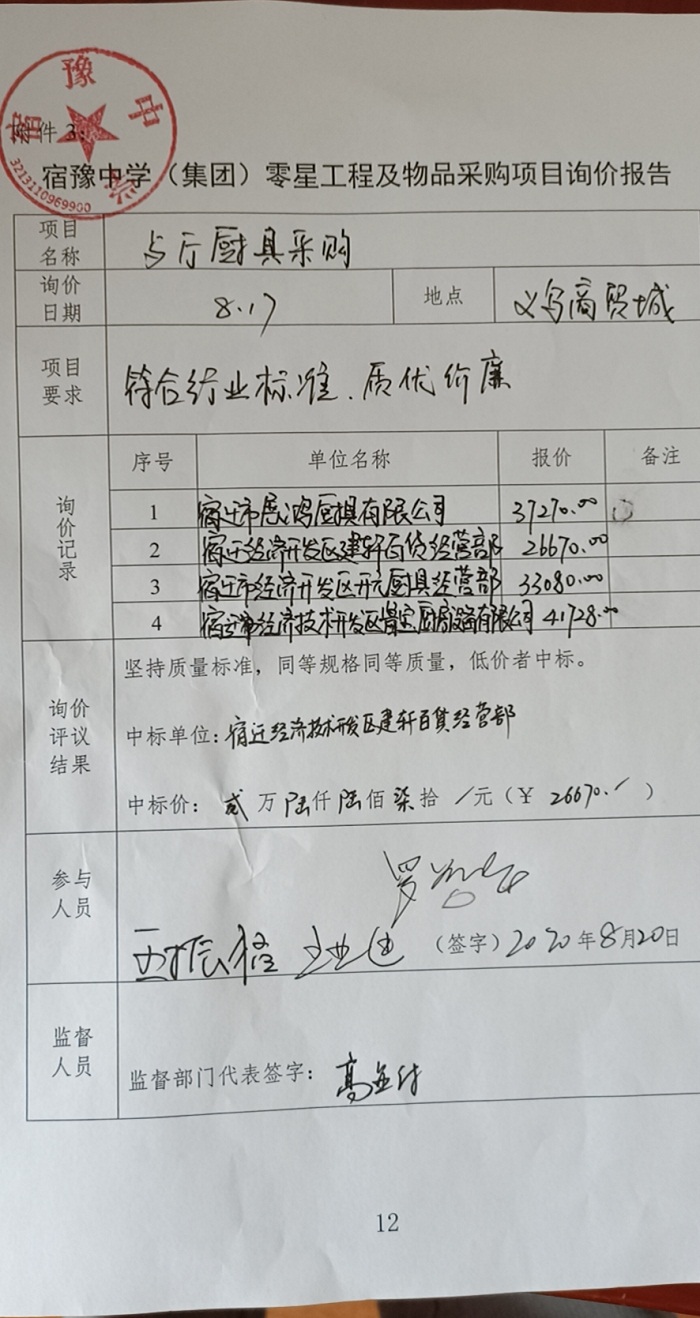 宿豫中学
3213110969900
附件3:
宿豫中学（集团）零星工程及物品采购项目询价报告
项目名称 与厅厨具采购
询价日期 8.17 地点 义乌商贸城
项目要求 符合行业标准.质优价廉
询价记录
序号 单位名称 报价 备注
1 宿迁市展鸿厨具有限公司 37270.00
2 宿迁经济开发区建轩百货经营部 26670.00
3 宿迁市经济开发区开元厨具经营部 33080.00
4 宿迁市经济技术开发区 厨房设备有限公司 41728.00
询价评议结果
坚持质量标准，同等规格同等质量，低价者中标。
中标单位: 宿迁经济技术开发区建轩百货经营部
中标价： 贰万陆仟陆佰柒拾/元（￥ 26670./ ）
参与人员
（签字）2020年8月20日
监督人员
监督部门代表签字：
12